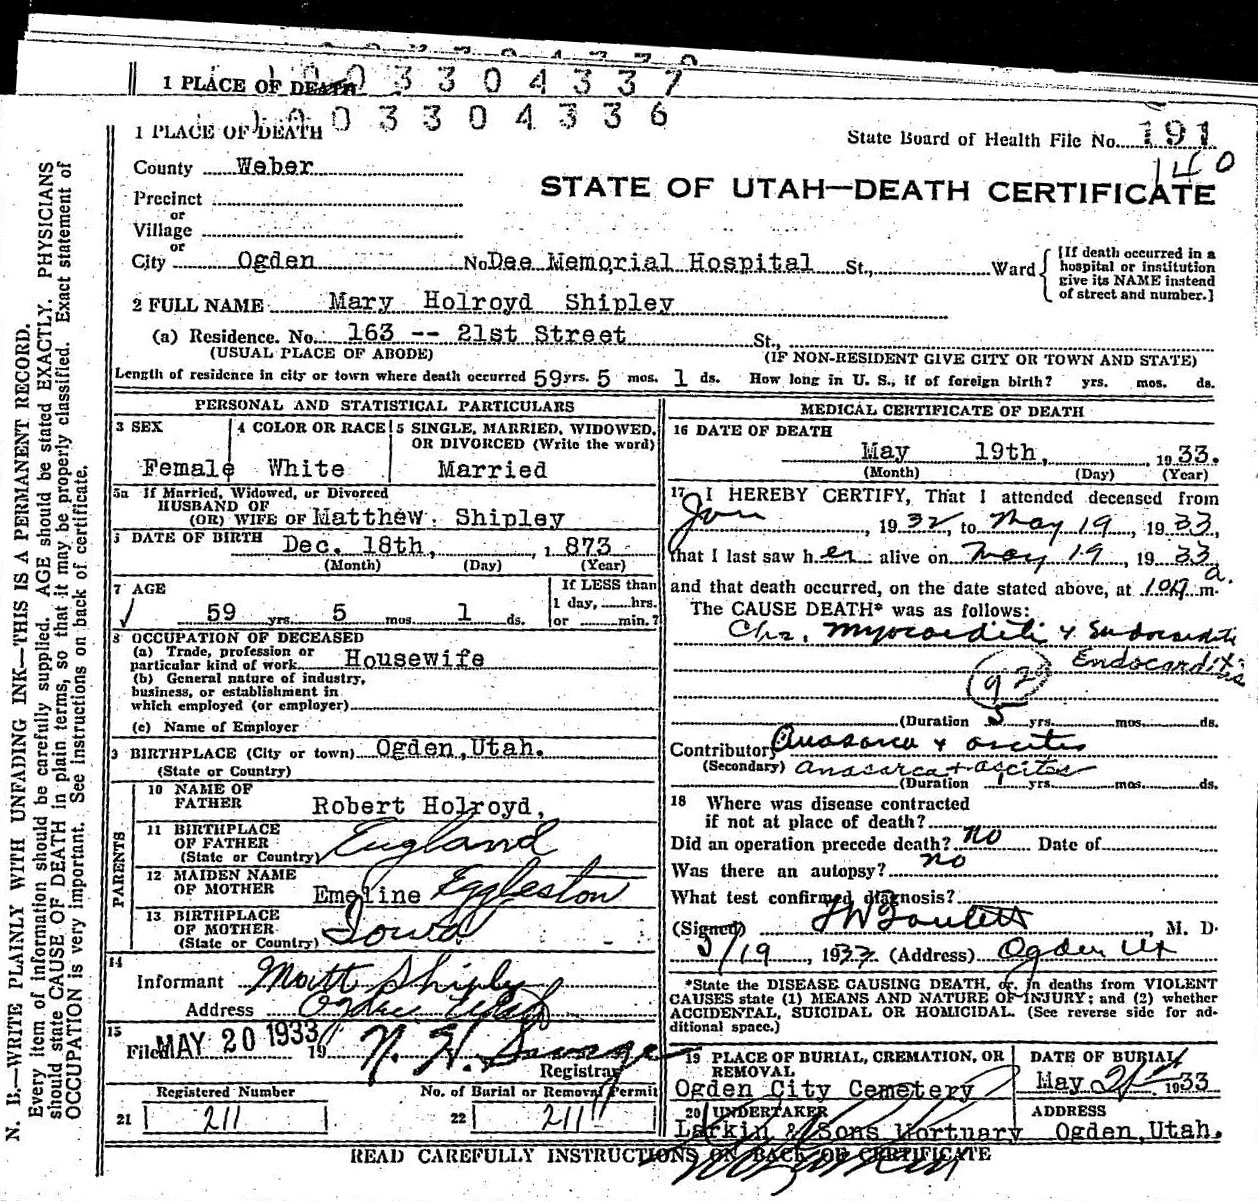 1 PLACE OF DEATH 1003304337
1003304336
1 PLACE OF DEATH
State Board of Health File No. 191
140
County Weber
STATE OF UTAH—DEATH CERTIFICATE
Precinct
or
Village
or
City Ogden No Dee Memorial Hospital St., Ward {[If death occurred in a
hospital or institution
give its NAME instead
of street and number.]
2 FULL NAME Mary Holroyd Shipley
(a) Residence. No. 163 -- 21st Street St.,
(USUAL PLACE OF ABODE) (IF NON-RESIDENT GIVE CITY OR TOWN AND STATE)
Length of residence in city or town where death occurred 59 yrs. 5 mos. 1 ds. How long in U. S., if of foreign birth? yrs. mos. ds.
PERSONAL AND STATISTICAL PARTICULARS
3 SEX 4 COLOR OR RACE 5 SINGLE, MARRIED, WIDOWED,
OR DIVORCED (Write the word)
Female White Married
5a If Married, Widowed, or Divorced
HUSBAND OF
(OR) WIFE OF Matthew Shipley
6 DATE OF BIRTH Dec. 18th, 1873
(Month) (Day) (Year)
7 AGE If LESS than
59 yrs. 5 mos. 1 ds. 1 day, hrs.
or min.?
8 OCCUPATION OF DECEASED
(a) Trade, profession or
particular kind of work Housewife
(b) General nature of industry,
business, or establishment in
which employed (or employer)
(c) Name of Employer
9 BIRTHPLACE (City or town) Ogden, Utah.
(State or Country)
PARENTS
10 NAME OF
FATHER Robert Holroyd,
11 BIRTHPLACE
OF FATHER England
(State or Country)
12 MAIDEN NAME
OF MOTHER Emeline Eggleston
13 BIRTHPLACE
OF MOTHER Iowa
(State or Country)
14
Informant Matt Shipley
Address Ogden Utah
15
Filed MAY 20 1933 19
Registrar
Registered Number No. of Burial or Removal Permit
21 211 22 211
MEDICAL CERTIFICATE OF DEATH
16 DATE OF DEATH
May 19th, 1933.
(Month) (Day) (Year)
17 I HEREBY CERTIFY, That I attended deceased from
Jan, 1932, to May 19, 1933,
that I last saw her alive on May 19, 1933
and that death occurred, on the date stated above, at a. m.
The CAUSE DEATH* was as follows:
Chr. Myocarditis & Endocarditis
Endocarditis
(Duration 5 yrs. mos. ds.
Contributory Anasarca + ascites
(Secondary) anasarca + ascites
(Duration 1 yrs. mos. ds.
18 Where was disease contracted
if not at place of death?
Did an operation precede death? no Date of
Was there an autopsy? no
What test confirmed diagnosis?
(Signed) M. D.
5/19, 1933 (Address) Ogden Ut
*State the DISEASE CAUSING DEATH, or, in deaths from VIOLENT
CAUSES state (1) MEANS AND NATURE OF INJURY; and (2) whether
ACCIDENTAL, SUICIDAL OR HOMICIDAL. (See reverse side for ad-
ditional space.)
19 PLACE OF BURIAL, CREMATION, OR
REMOVAL
Ogden City Cemetery
DATE OF BURIAL
May 21 1933
20 UNDERTAKER ADDRESS
Larkin & Sons Mortuary Ogden, Utah.
READ CAREFULLY INSTRUCTIONS ON BACK OF CERTIFICATE
N. B.—WRITE PLAINLY WITH UNFADING INK—THIS IS A PERMANENT RECORD.
Every item of information should be carefully supplied. AGE should be stated EXACTLY. PHYSICIANS
should state CAUSE OF DEATH in plain terms, so that it may be properly classified. Exact statement of
OCCUPATION is very important. See instructions on back of certificate.